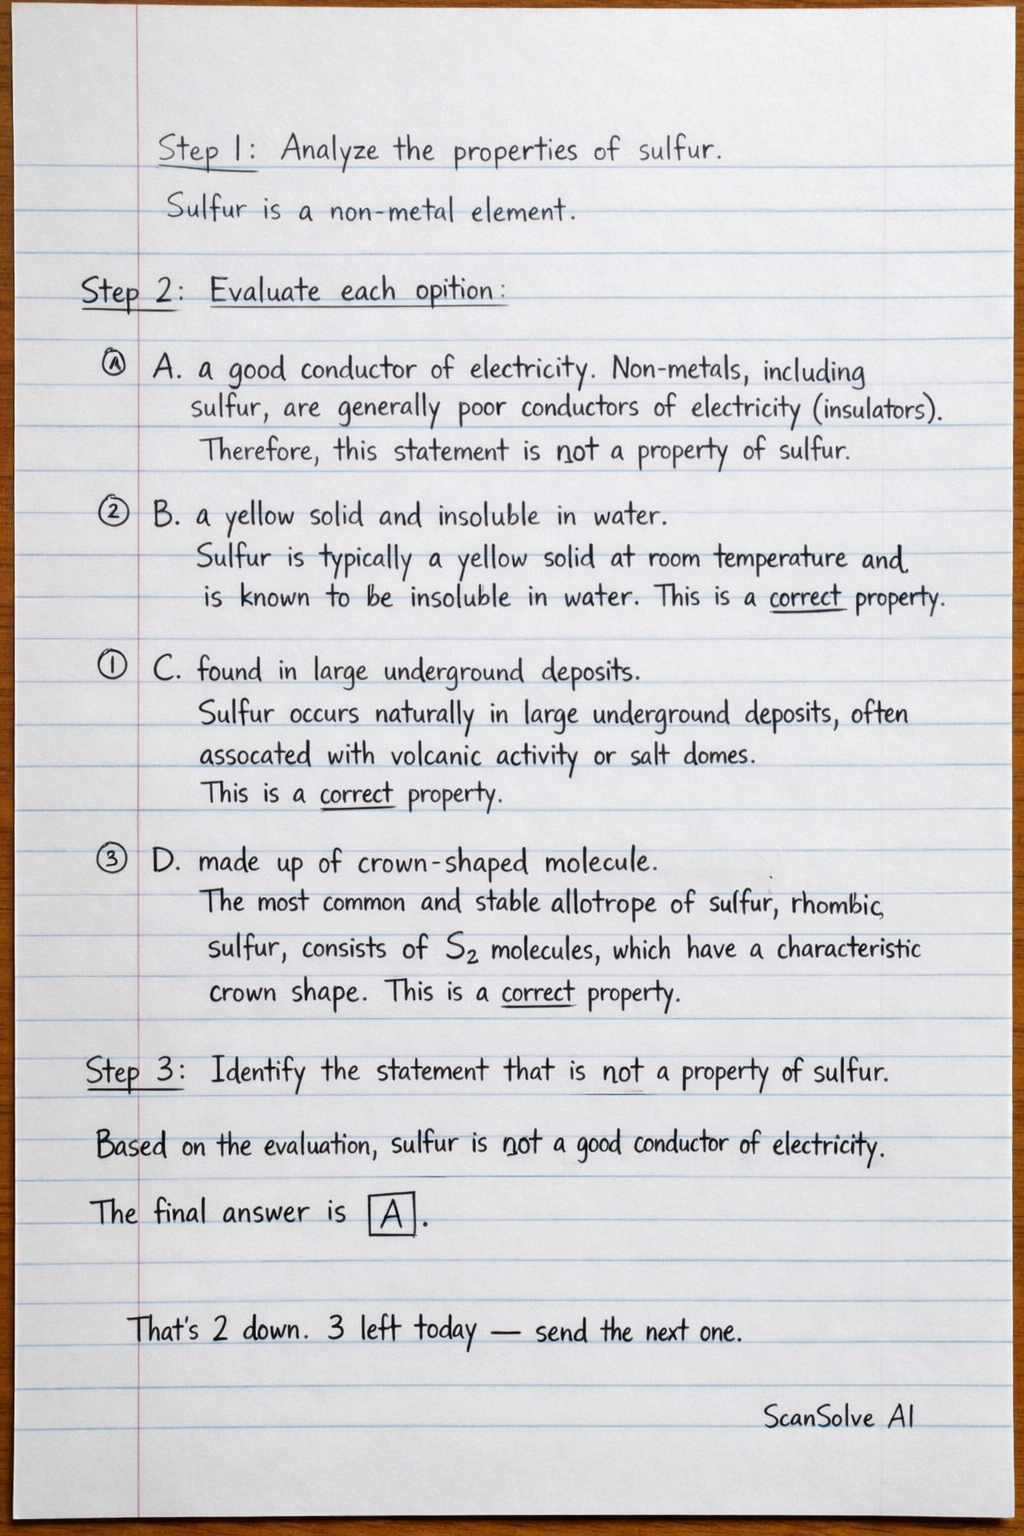 Step 1: Analyze the properties of sulfur.
Sulfur is a non-metal element.
Step 2: Evaluate each opition:
Ⓐ A. a good conductor of electricity. Non-metals, including
sulfur, are generally poor conductors of electricity (insulators).
Therefore, this statement is not a property of sulfur.
② B. a yellow solid and insoluble in water.
Sulfur is typically a yellow solid at room temperature and
is known to be insoluble in water. This is a correct property.
① C. found in large underground deposits.
Sulfur occurs naturally in large underground deposits, often
assocated with volcanic activity or salt domes.
This is a correct property.
③ D. made up of crown-shaped molecule.
The most common and stable allotrope of sulfur, rhombic
sulfur, consists of S₂ molecules, which have a characteristic
crown shape. This is a correct property.
Step 3: Identify the statement that is not a property of sulfur.
Based on the evaluation, sulfur is not a good conductor of electricity.
The final answer is A.
That's 2 down. 3 left today — send the next one.
ScanSolve AI